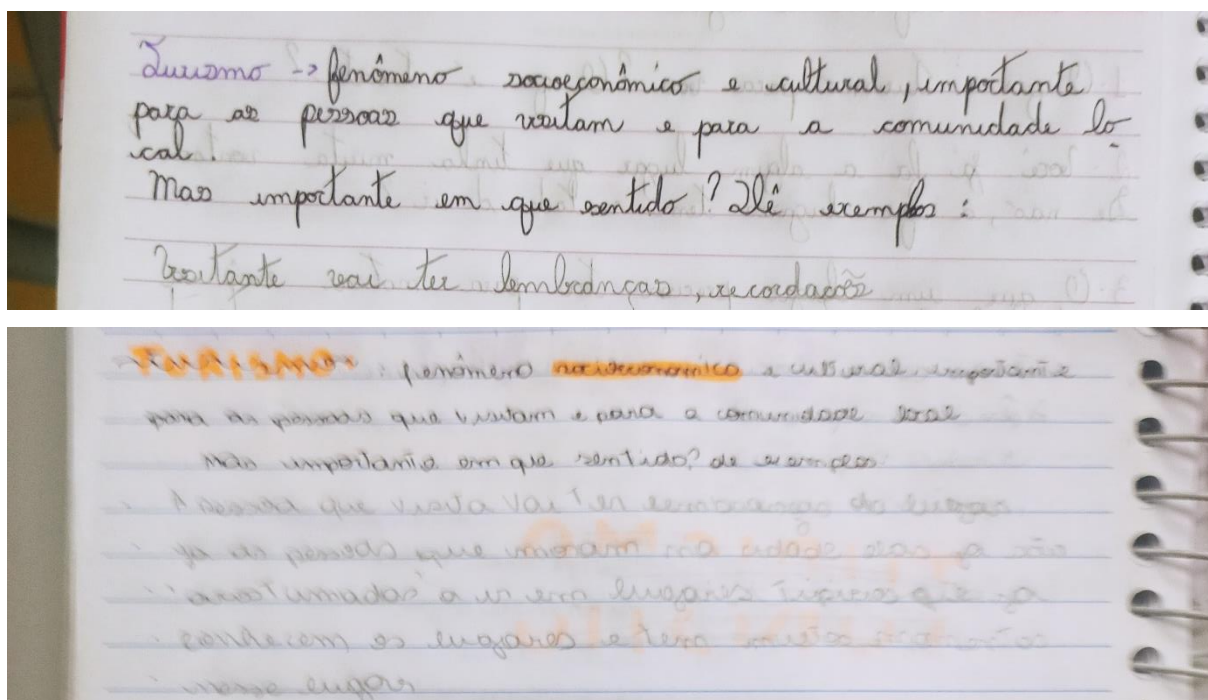 Turismo -> fenômeno socioeconômico e cultural, importante
para as pessoas que visitam e para a comunidade lo
cal.
Mas importante em que sentido? Dê exemplos:
Visitante vai ter lembranças, recordações
TURISMO: fenômeno socioeconomico e cultural importante
para as pessoas que visitam e para a comunidade local
mas importante em que sentido? de exemplos
A pessoa que visita vai ter lembranças do lugar
ja as pessoas que moram na cidade elas ja são
acostumadas a ir em lugares que ja
conhecem os lugares e tem muitas
nesse lugar